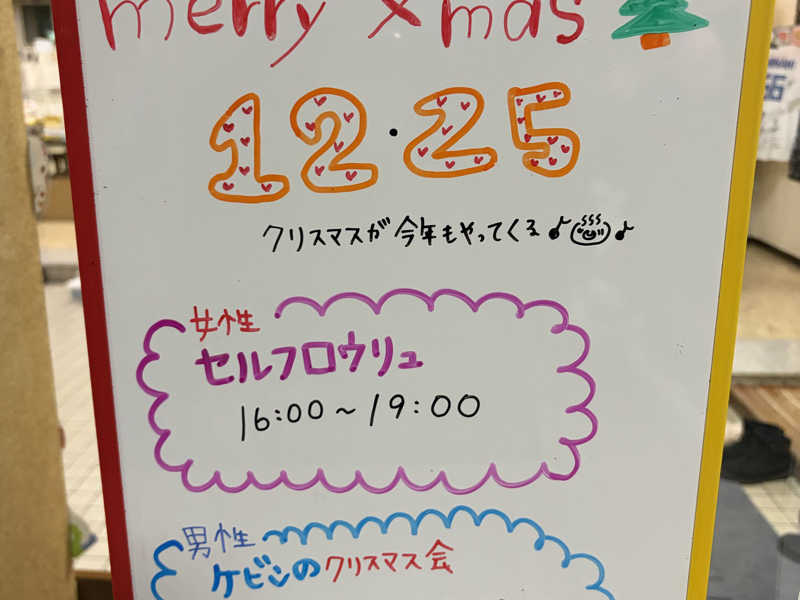 merry xmas
12.25
クリスマスが今年もやってくる♪♪
女性
セルフロウリュ
16:00~19:00
男性
ケビンのクリスマス会